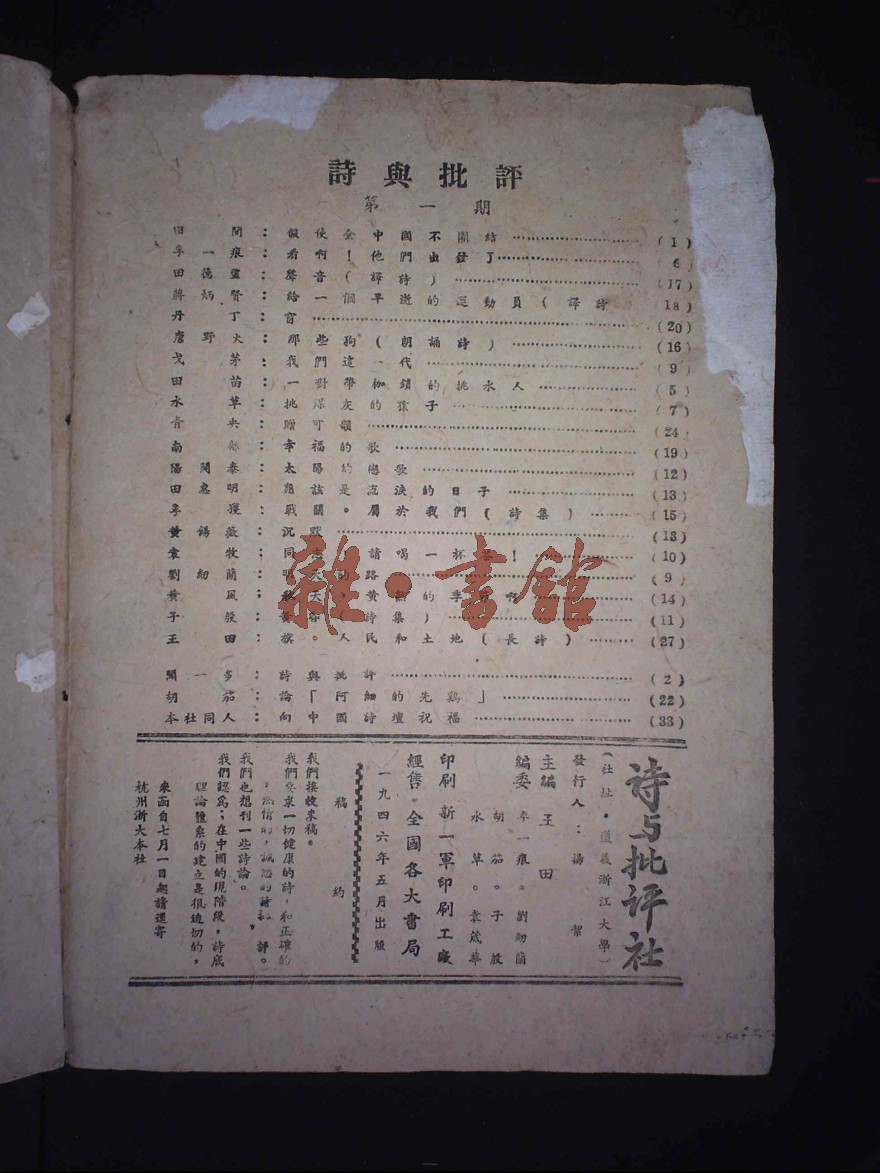 詩與批評
第一期
田間：假使全中國不團結 (1)
李一痕：看啊！他們出發了 (6)
聲音（譯詩） (17)
蔣炳賢：給一個早逝的運動員（譯詩 (18)
丹丁：窗 (20)
唐野火：那些狗（朗誦詩） (16)
戈茅：我們這一代 (9)
田苗：一對帶枷鎖的挑水人 (5)
水草：挑煤灰的孩子 (7)
青央：贈可韻 (24)
南：幸福的歌 (19)
陽開泰：太陽的戀歌 (12)
田惠明：應該是流淚的日子 (13)
李獲：戰鬭。屬於我們（詩集） (15)
黃錫薇：沉默 (13)
袁牧：同志請喝一杯 ！ (10)
劉劬蘭：明天的路 (9)
黃風： (14)
子殷： 詩集） (11)
王田：旗。人民和土地（長詩） (27)
聞一多：詩與批評 (2)
胡茄：論「阿細的先鷄」 (22)
本社同人：向中國詩壇祝福 (33)
詩与批评社
（社址・遵義浙江大學）
發行人：楊絜
主編 王田
編委 李一痕。劉劬蘭
胡茄。子殷
水草。袁箴華
印刷 新一軍印刷工廠
經售 全國各大書局
一九四六年五月出版
稿約
我們接收來稿。
我們要求一切健康的詩，和正確的
，熱情的，誠懇的詩評。
我們也想刊一些詩論。
我們認爲：在中國的現階段，詩底
理論體系的建立是很迫切的，
來函自七月一日起請逕寄
杭州浙大本社
雜・書館